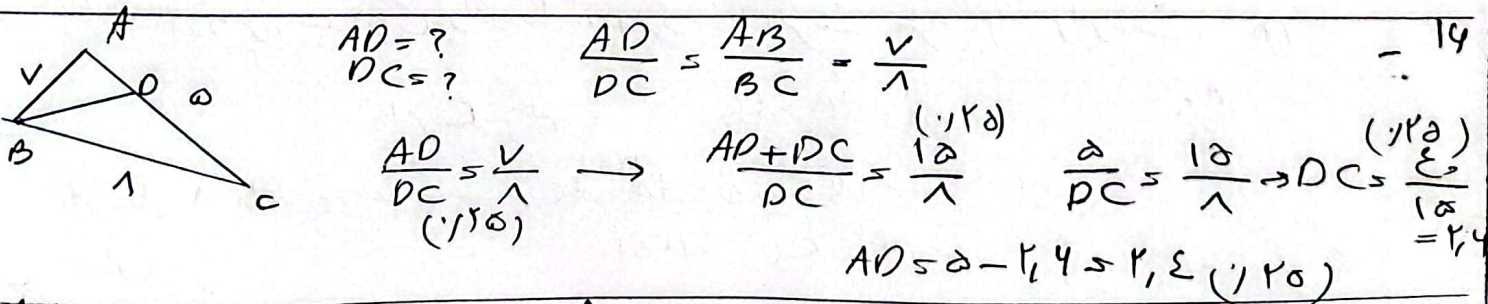 ۱۶ -
A
AD = ?
DC = ?
AD/DC = AB/BC = ۷/۸
۷
D
۵
B
۸
C
AD/DC = ۷/۸ (۰/۲۵) → AD+DC/DC = ۱۵/۸ (۰/۲۵) ۵/DC = ۱۵/۸ → DC = ۴۰/۱۵ (۰/۲۵) = ۲,۶
AD = ۵ - ۲,۶ = ۲,۴ (۰/۲۵)